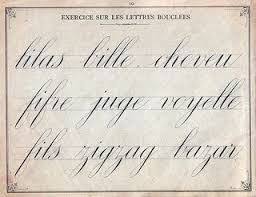 EXERCICE SUR LES LETTRES BOUCLÉES
lilas bille cheveu
fifre juge voyelle
fils zigzag bazar